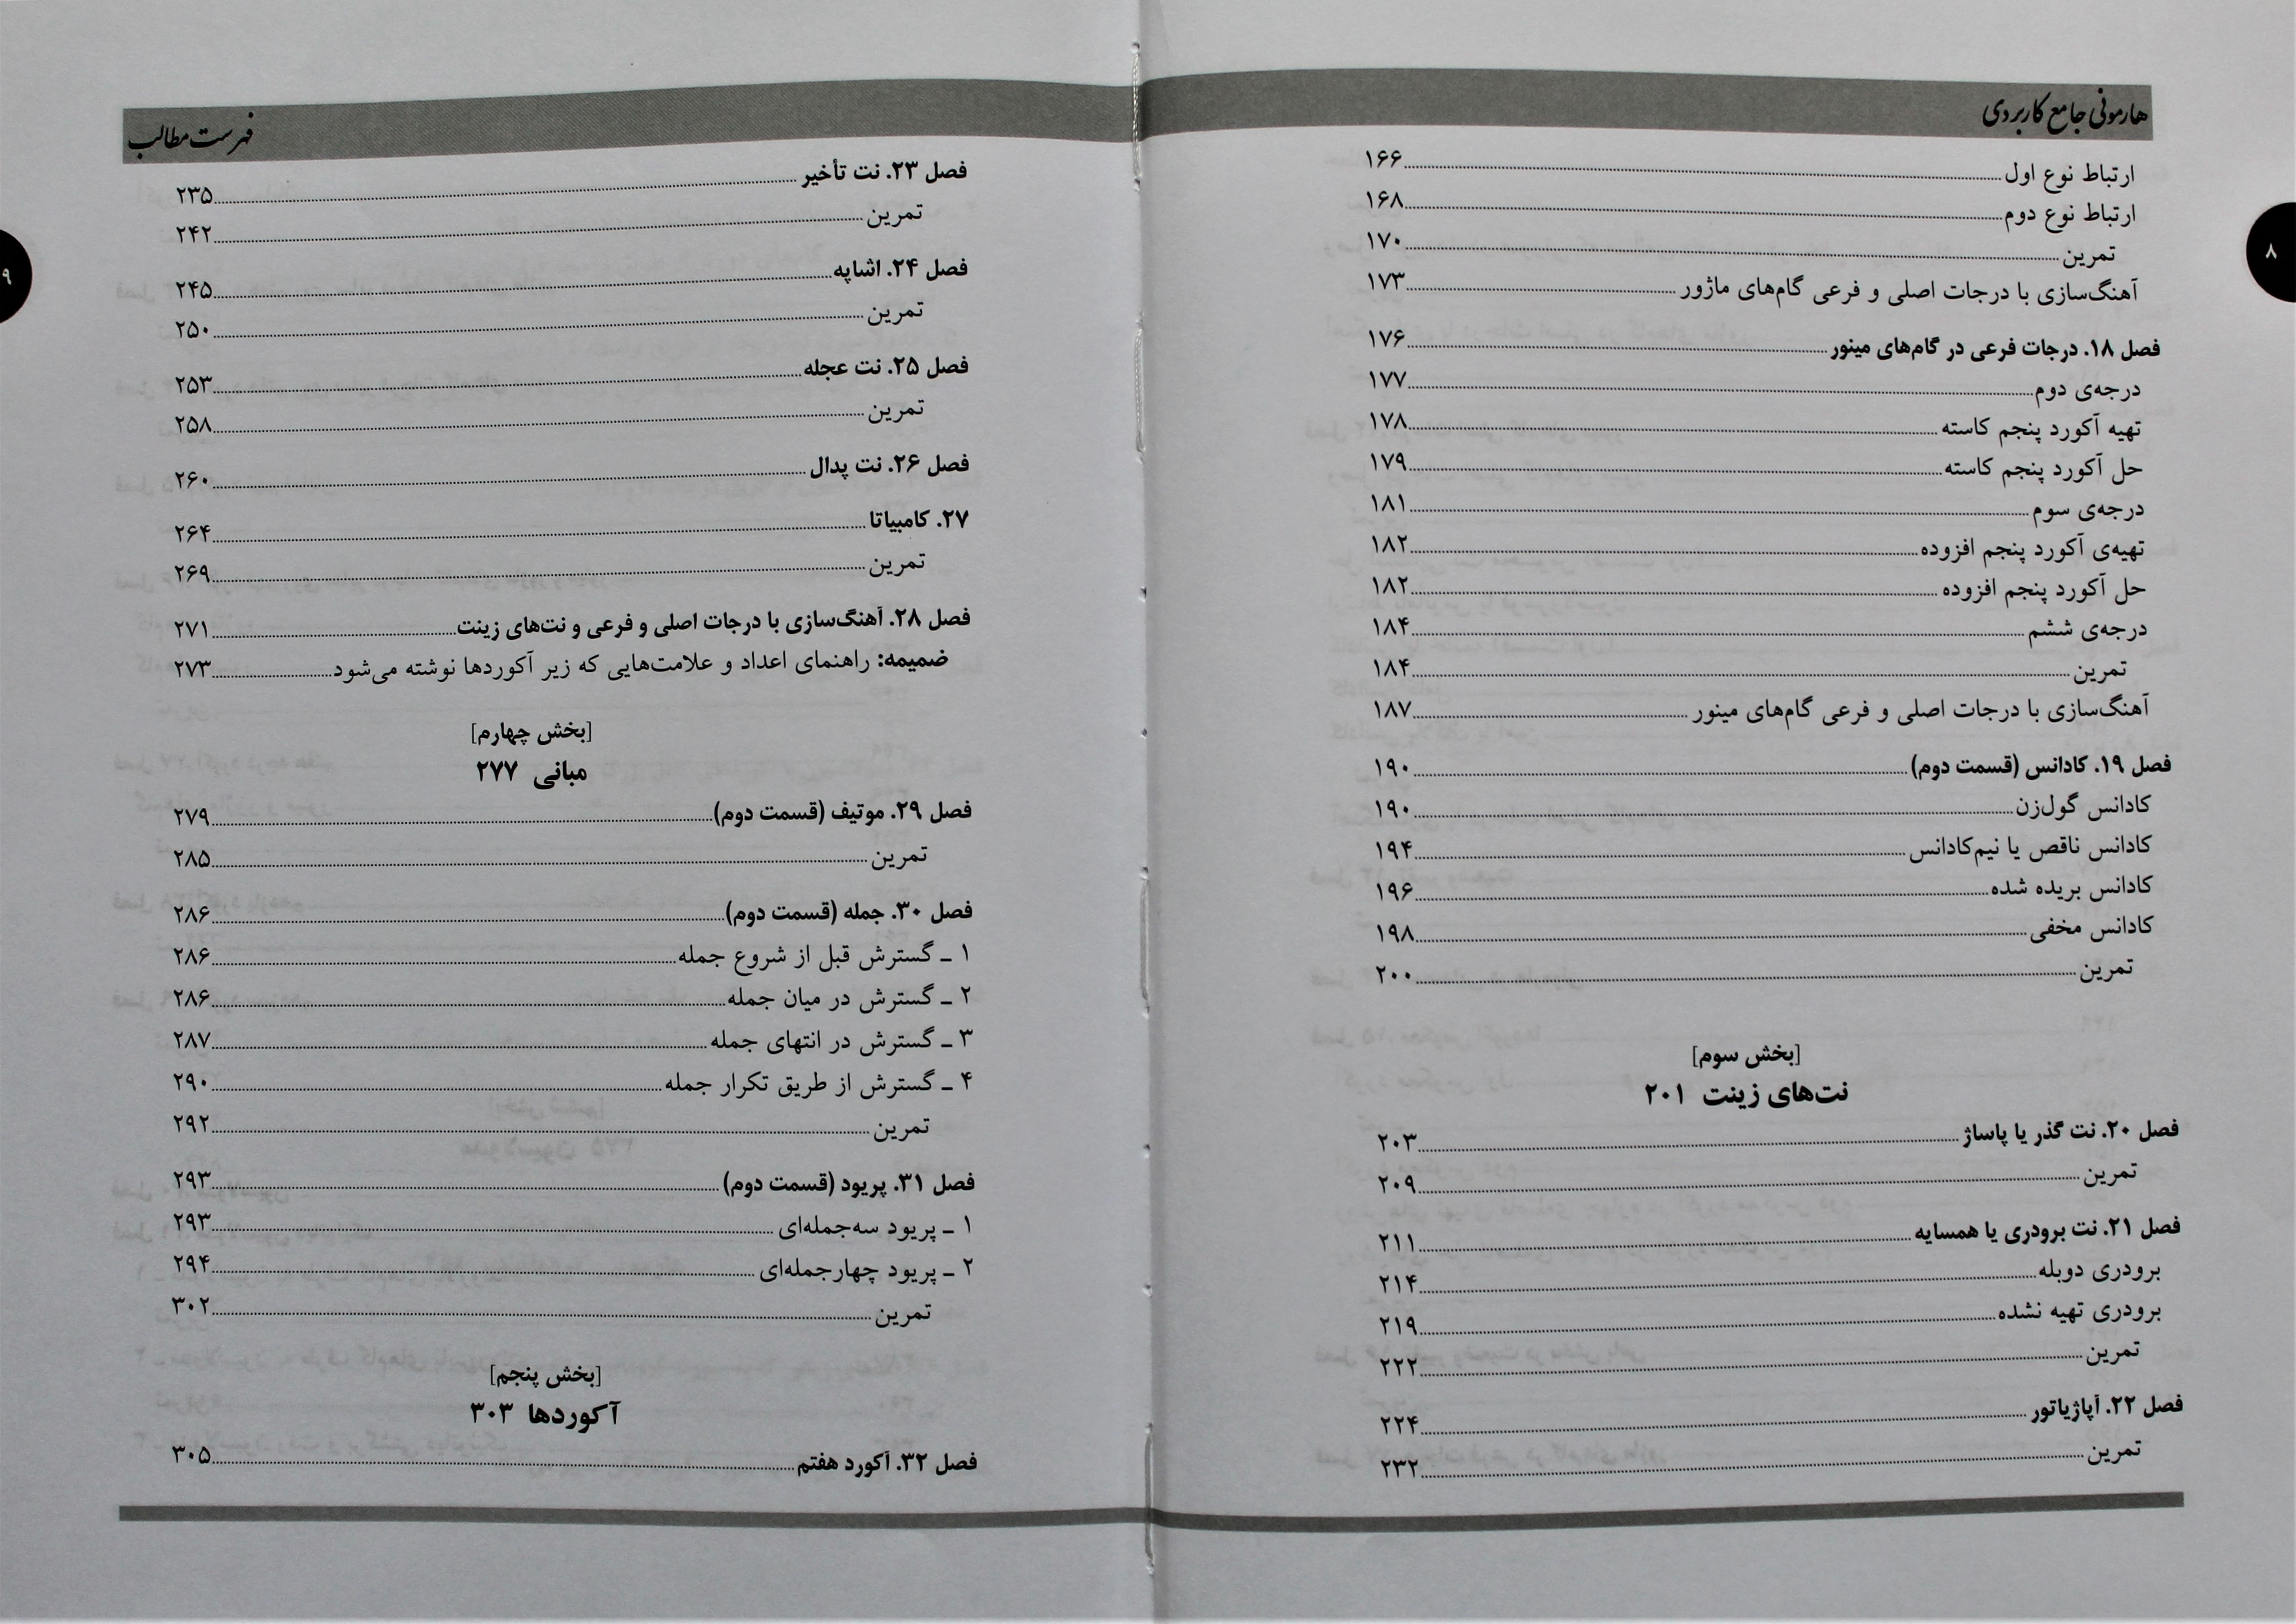 هارمونی جامع کاربردی
۸
ارتباط نوع اول ۱۶۶
ارتباط نوع دوم ۱۶۸
تمرین ۱۷۰
آهنگ‌سازی با درجات اصلی و فرعی گام‌های ماژور ۱۷۳
فصل ۱۸. درجات فرعی در گام‌های مینور ۱۷۶
درجه‌ی دوم ۱۷۷
تهیه آکورد پنجم کاسته ۱۷۸
حل آکورد پنجم کاسته ۱۷۹
درجه‌ی سوم ۱۸۱
تهیه‌ی آکورد پنجم افزوده ۱۸۲
حل آکورد پنجم افزوده ۱۸۲
درجه‌ی ششم ۱۸۴
تمرین ۱۸۴
آهنگ‌سازی با درجات اصلی و فرعی گام‌های مینور ۱۸۷
فصل ۱۹. کادانس (قسمت دوم) ۱۹۰
کادانس گول‌زن ۱۹۰
کادانس ناقص یا نیم‌کادانس ۱۹۴
کادانس بریده شده ۱۹۶
کادانس مخفی ۱۹۸
تمرین ۲۰۰
[بخش سوم]
نت‌های زینت ۲۰۱
فصل ۲۰. نت گذر یا پاساژ ۲۰۳
تمرین ۲۰۹
فصل ۲۱. نت برودری یا همسایه ۲۱۱
برودری دوبله ۲۱۴
برودری تهیه نشده ۲۱۹
تمرین ۲۲۲
فصل ۲۲. آپاژیاتور ۲۲۴
تمرین ۲۳۲
فهرست مطالب
۹
فصل ۲۳. نت تأخیر ۲۳۵
تمرین ۲۴۲
فصل ۲۴. اشاپه ۲۴۵
تمرین ۲۵۰
فصل ۲۵. نت عجله ۲۵۳
تمرین ۲۵۸
فصل ۲۶. نت پدال ۲۶۰
۲۷. کامبیاتا ۲۶۴
تمرین ۲۶۹
فصل ۲۸. آهنگ‌سازی با درجات اصلی و فرعی و نت‌های زینت ۲۷۱
ضمیمه: راهنمای اعداد و علامت‌هایی که زیر آکوردها نوشته می‌شود ۲۷۳
[بخش چهارم]
مبانی ۲۷۷
فصل ۲۹. موتیف (قسمت دوم) ۲۷۹
تمرین ۲۸۵
فصل ۳۰. جمله (قسمت دوم) ۲۸۶
۱ ـ گسترش قبل از شروع جمله ۲۸۶
۲ ـ گسترش در میان جمله ۲۸۶
۳ ـ گسترش در انتهای جمله ۲۸۷
۴ ـ گسترش از طریق تکرار جمله ۲۹۰
تمرین ۲۹۲
فصل ۳۱. پریود (قسمت دوم) ۲۹۳
۱ ـ پریود سه‌جمله‌ای ۲۹۳
۲ ـ پریود چهارجمله‌ای ۲۹۴
تمرین ۳۰۲
[بخش پنجم]
آکوردها ۳۰۳
فصل ۳۲. آکورد هفتم ۳۰۵